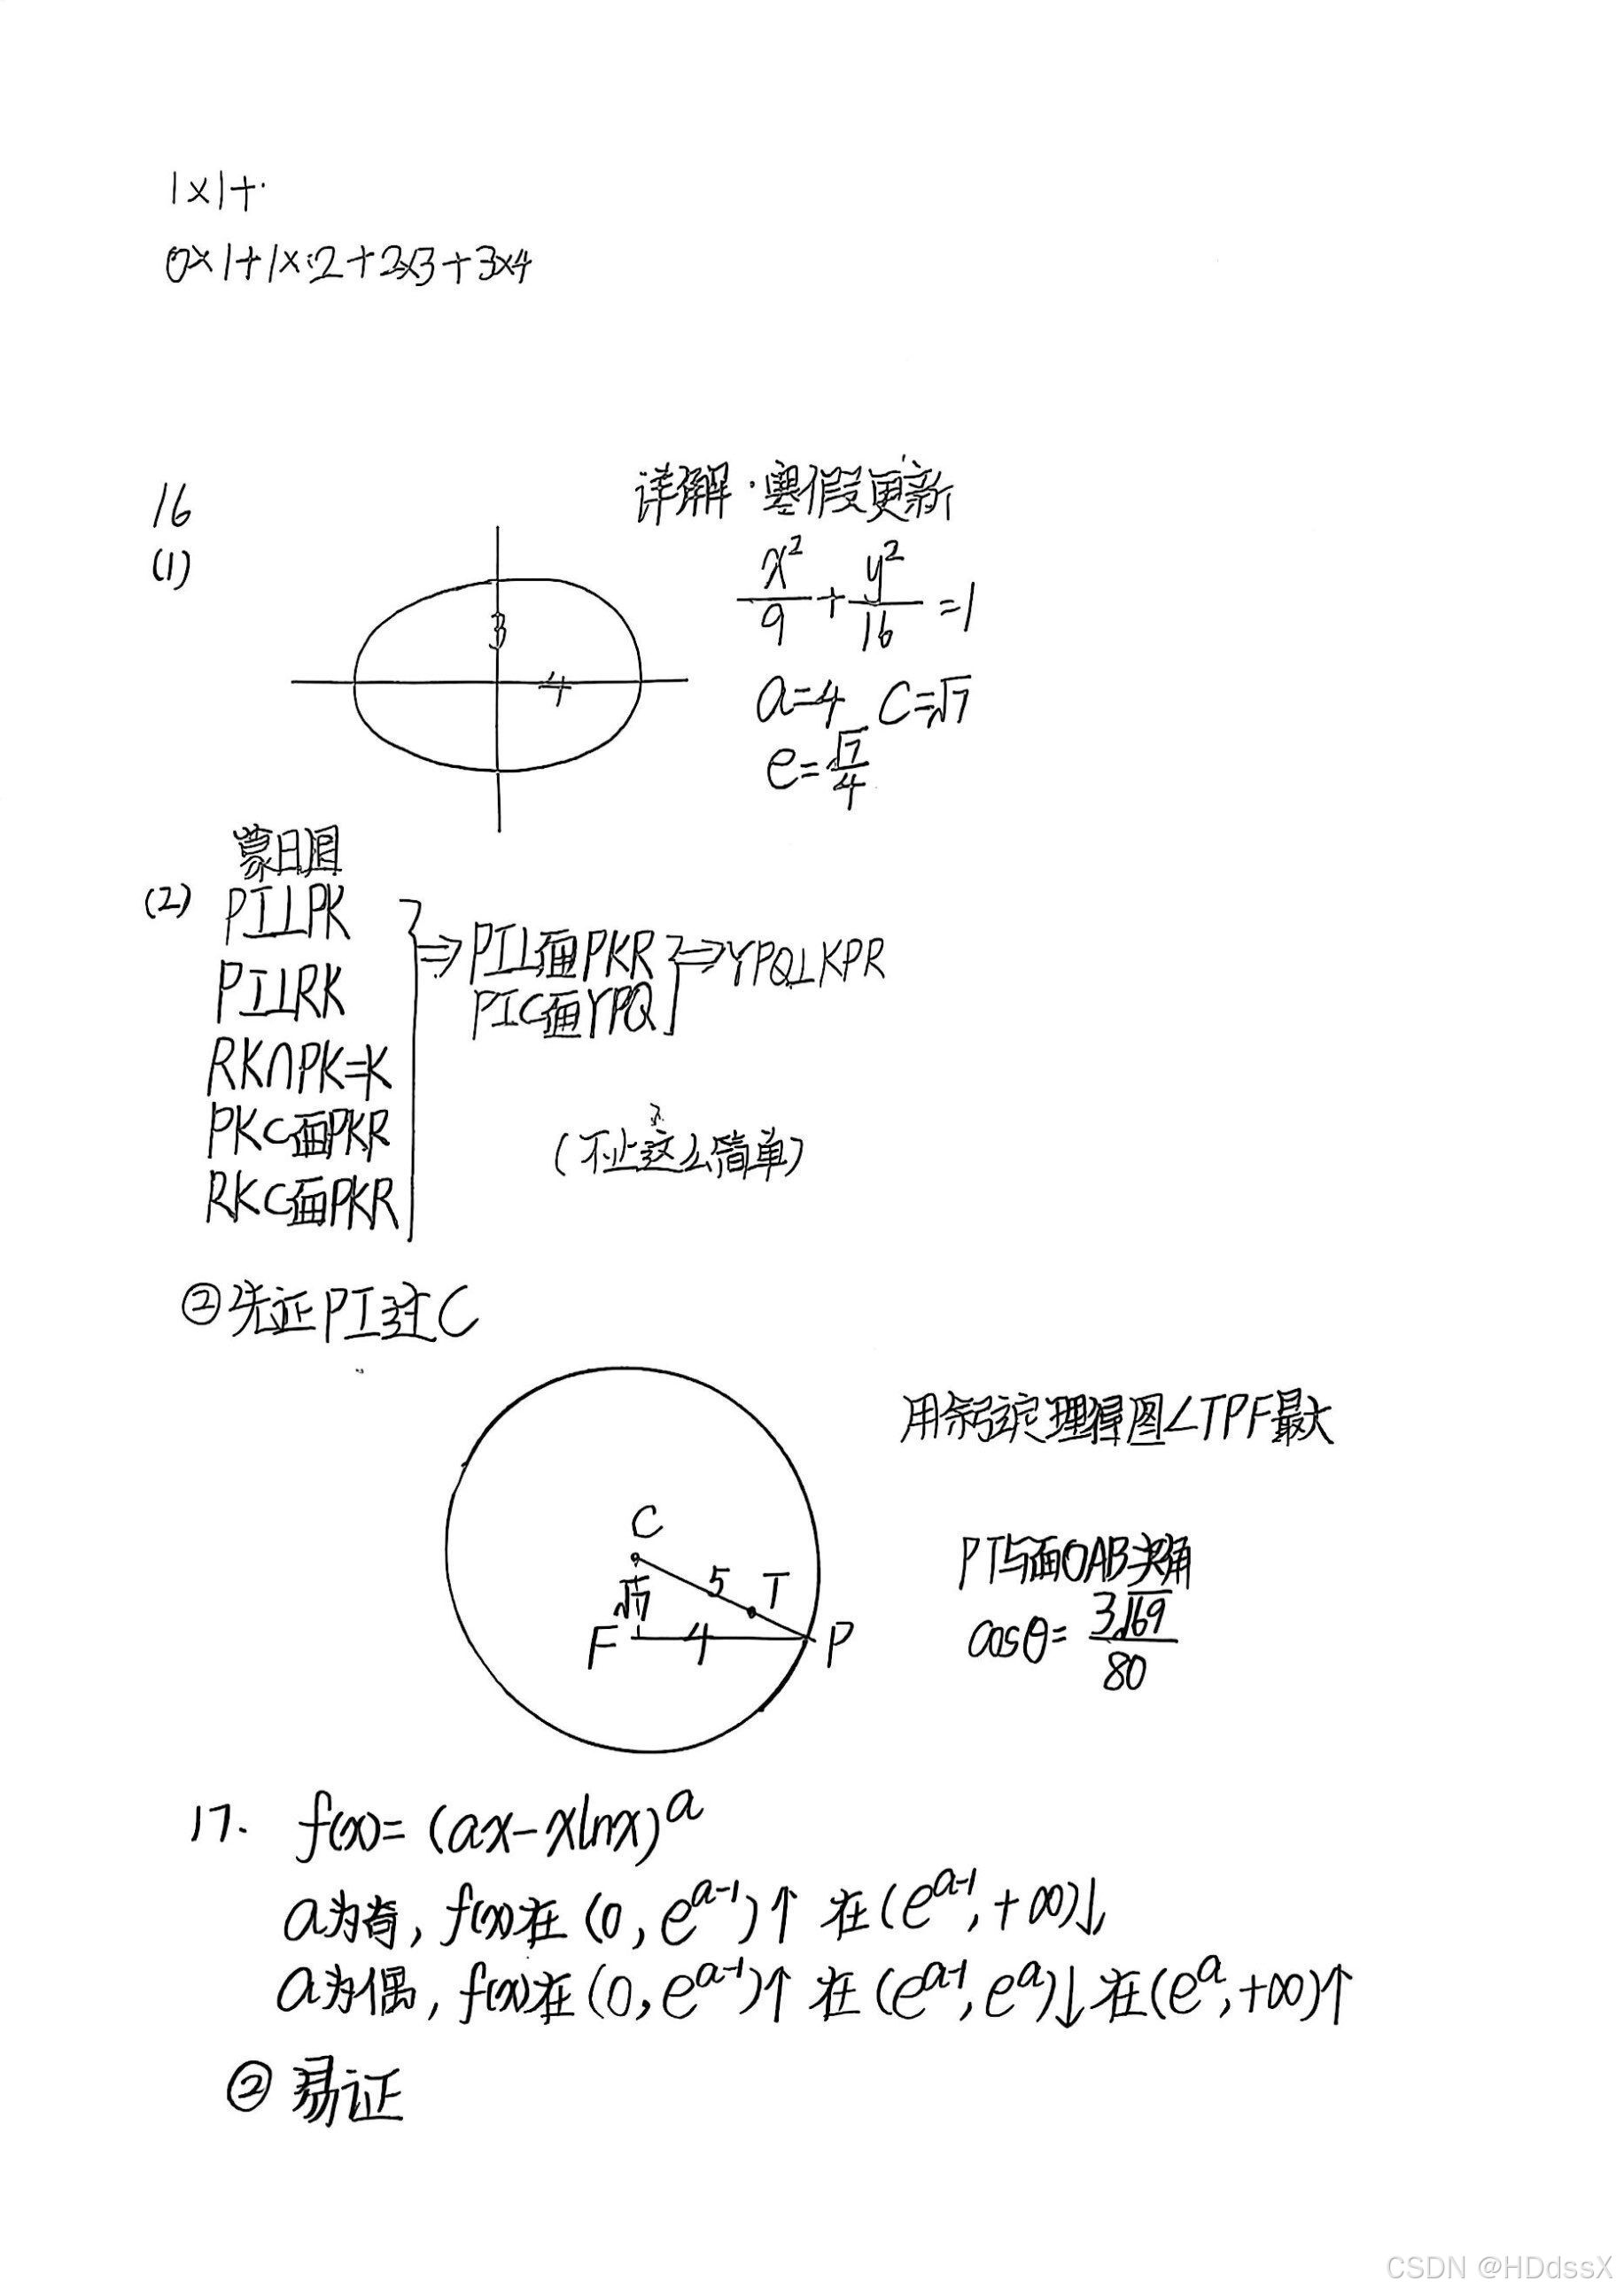 1×1+
0×1+1×2+2×3+3×4
16
详解·寒假更新
(1)
3
4
x²/9+y²/16=1
a=4 c=√7
e=√7/4
蒙日圆
(2) PI⊥PK
PI⊥RK
RK∩PK=K
PK⊂面PKR
RK⊂面PKR
⇒PI⊥面PKR
PI⊂面YPQ
⇒YPQ⊥KPR
(不止这么简单)
②先证PI过C
用定理得图∠TPF最大
C
√7
5
T
F
4
P
PT与面OAB夹角
cosθ=3√69/80
17. f(x)=(ax-xlnx)^a
a为奇,f(x)在(0,e^(a-1))↑ 在(e^(a-1),+∞)↓
a为偶,f(x)在(0,e^(a-1))↑ 在(e^(a-1),e^a)↓在(e^a,+∞)↑
②易证
CSDN @HDdssX